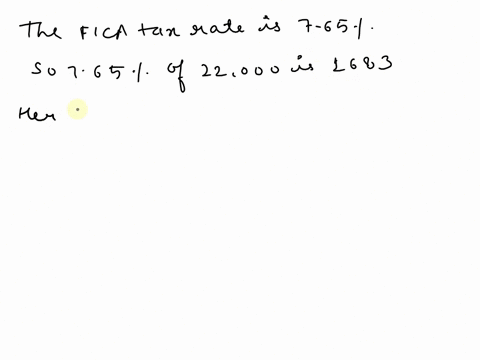 The FICA tax rate is 7.65%.
So 7.65% of 22,000 is 1683
Her